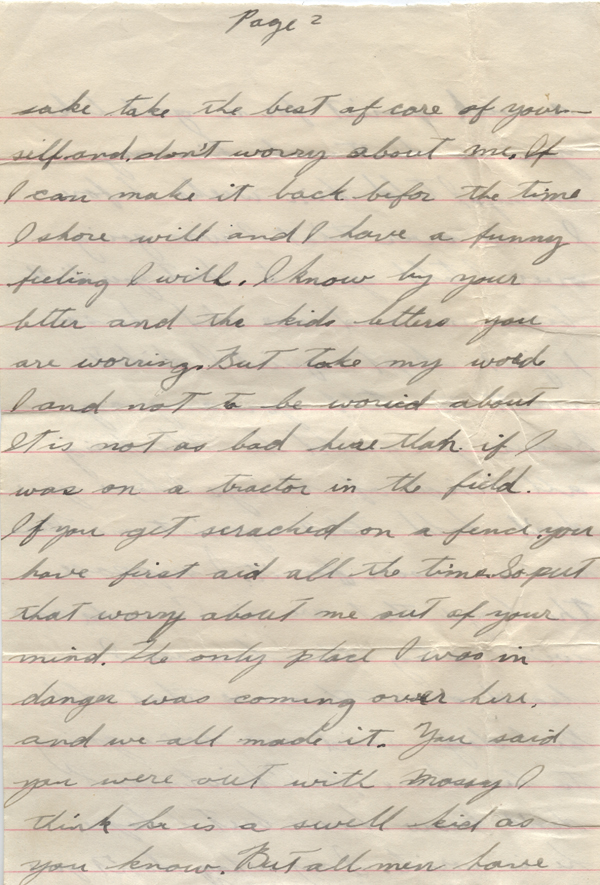 Page 2
sake take the best of care of your-
self and don't worry about me. If
I can make it back befor the time
I shore will and I have a funny
feeling I will. I know by your
letter and the kids letters you
are worring. But take my word
I and not to be woried about
It is not as bad here than if I
was on a tractor in the field.
If you get scrached on a fence you
have first aid all the time. So put
that worry about me out of your
mind. The only place I was in
danger was coming over here,
and we all made it. You said
you were out with Mossy I
think he is a swell kid as
you know. But all men have